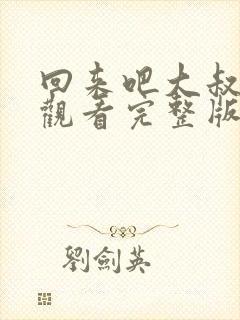 回来吧大叔
觀看完整版
劉劍英